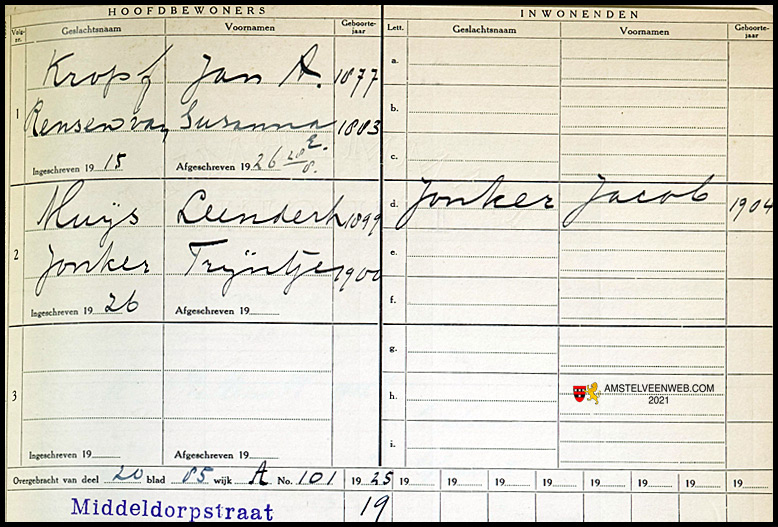 HOOFDBEWONERS INWONENDEN
Volg-nr. Geslachtsnaam Voornamen Geboorte-jaar Lett. Geslachtsnaam Voornamen Geboorte-jaar
Kropff Jan A. 1877 a.
1 Rensen van Susanna E. 1883 b.
Ingeschreven 19 15 Afgeschreven 19 26 28/8. c.
Muijs Leendert 1899 d. Jonker Jacob 1904
2 Jonker Trijntje 1900 e.
Ingeschreven 19 26 Afgeschreven 19 f.
g.
3 h. AMSTELVEENWEB.COM
2021
Ingeschreven 19 Afgeschreven 19 i.
Overgebracht van deel 20 blad 85 wijk A No. 101 19 25 19 19 19 19 19 19 19 19
Middeldorpstraat 19